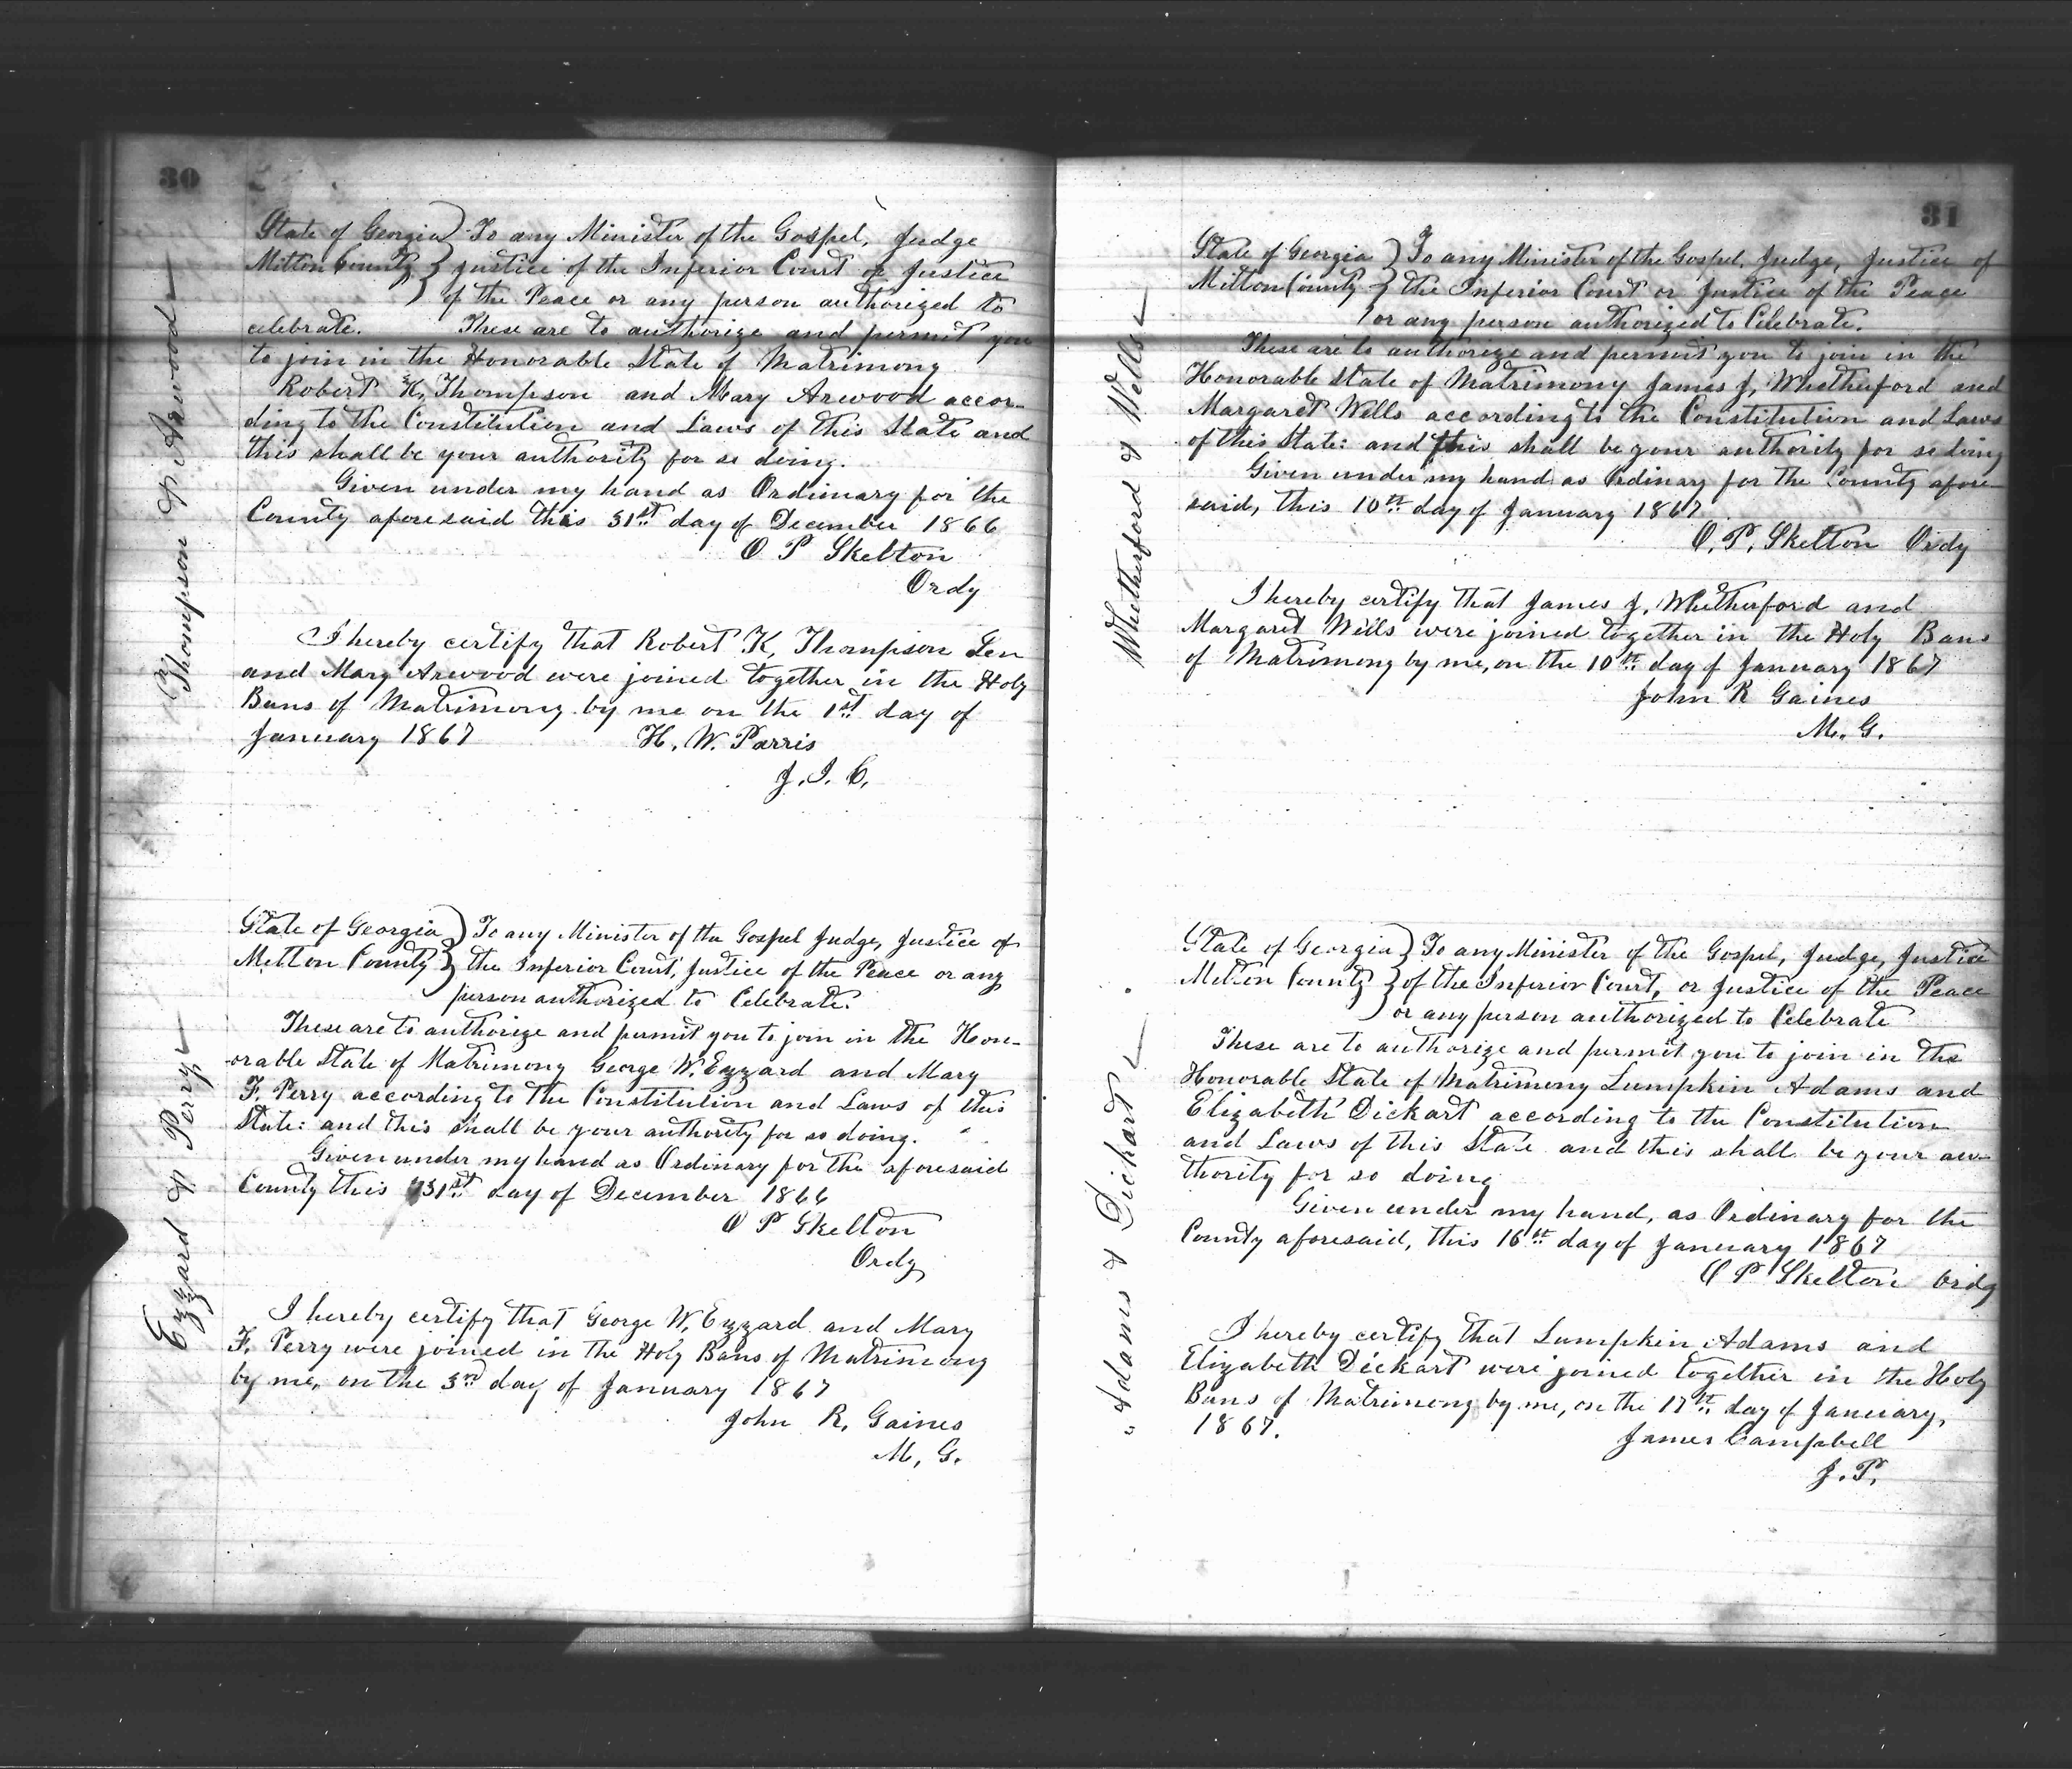 30
Thompson & Arwood
State of Georgia) To any Minister of the Gospel, Judge
Milton County } Justice of the Inferior Court or Justice
) of the Peace or any person authorized to
celebrate. These are to authorize and permit you
to join in the Honorable State of Matrimony
Robert K, Thompson and Mary Arwood accor-
ding to the Constitution and Laws of this State and
this shall be your authority for so doing.
Given under my hand as Ordinary for the
County aforesaid this 31st day of December 1866
O P Skelton
Ordy
I hereby certify that Robert K, Thompson Sen
and Mary Arwood were joined together in the Holy
Bans of Matrimony by me on the 1st day of
January 1867 H. W. Parris
J. I. C.
Ezzard & Perry
State of Georgia ) To any Minister of the Gospel Judge, Justice of
Milton County } the Inferior Court, Justice of the Peace or any
person authorized to Celebrate.
These are to authorize and permit you to join in the Hon-
orable State of Matrimony George W. Ezzard and Mary
F. Perry according to the Constitution and Laws of this
State: and this shall be your authority for so doing.
Given under my hand as Ordinary for the aforesaid
County this 31st day of December 1866
O P Skelton
Ordy
I hereby certify that George W. Ezzard and Mary
F. Perry were joined in the Holy Bans of Matrimony
by me, on the 3rd day of January 1867
John R. Gaines
M, G.
31
Whetherford & Wells
State of Georgia ) To any Minister of the Gospel. Judge, Justice of
Milton County } the Inferior Court or Justice of the Peace
) or any person authorized to Celebrate.
These are to authorize and permit you to join in the
Honorable State of Matrimony James J, Whetherford and
Margaret Wells according to the Constitution and Laws
of this State: and this shall be your authority for so doing
Given under my hand as Ordinary for the County afore-
said, this 10th day of January 1867
O. P. Skelton Ordy
I hereby certify that James J. Whetherford and
Margaret Wells were joined together in the Holy Bans
of Matrimony by me, on the 10th day of January 1867
John R Gaines
M. G.
Adams & Dickart
State of Georgia ) To any Minister of the Gospel, Judge, Justice
Milton County } of the Inferior Court, or Justice of the Peace
) or any person authorized to Celebrate
These are to authorize and permit you to join in the
Honorable State of Matrimony Lumpkin Adams and
Elizabeth Dickart according to the Constitution
and Laws of this State and this shall be your au-
thority for so doing
Given under my hand, as Ordinary for the
County aforesaid, this 16th day of January 1867
O P Skelton Ordy
I hereby certify that Lumpkin Adams and
Elizabeth Dickart were joined together in the Holy
Bans of Matrimony by me, on the 17th day of January,
1867. James Campbell
J. P.